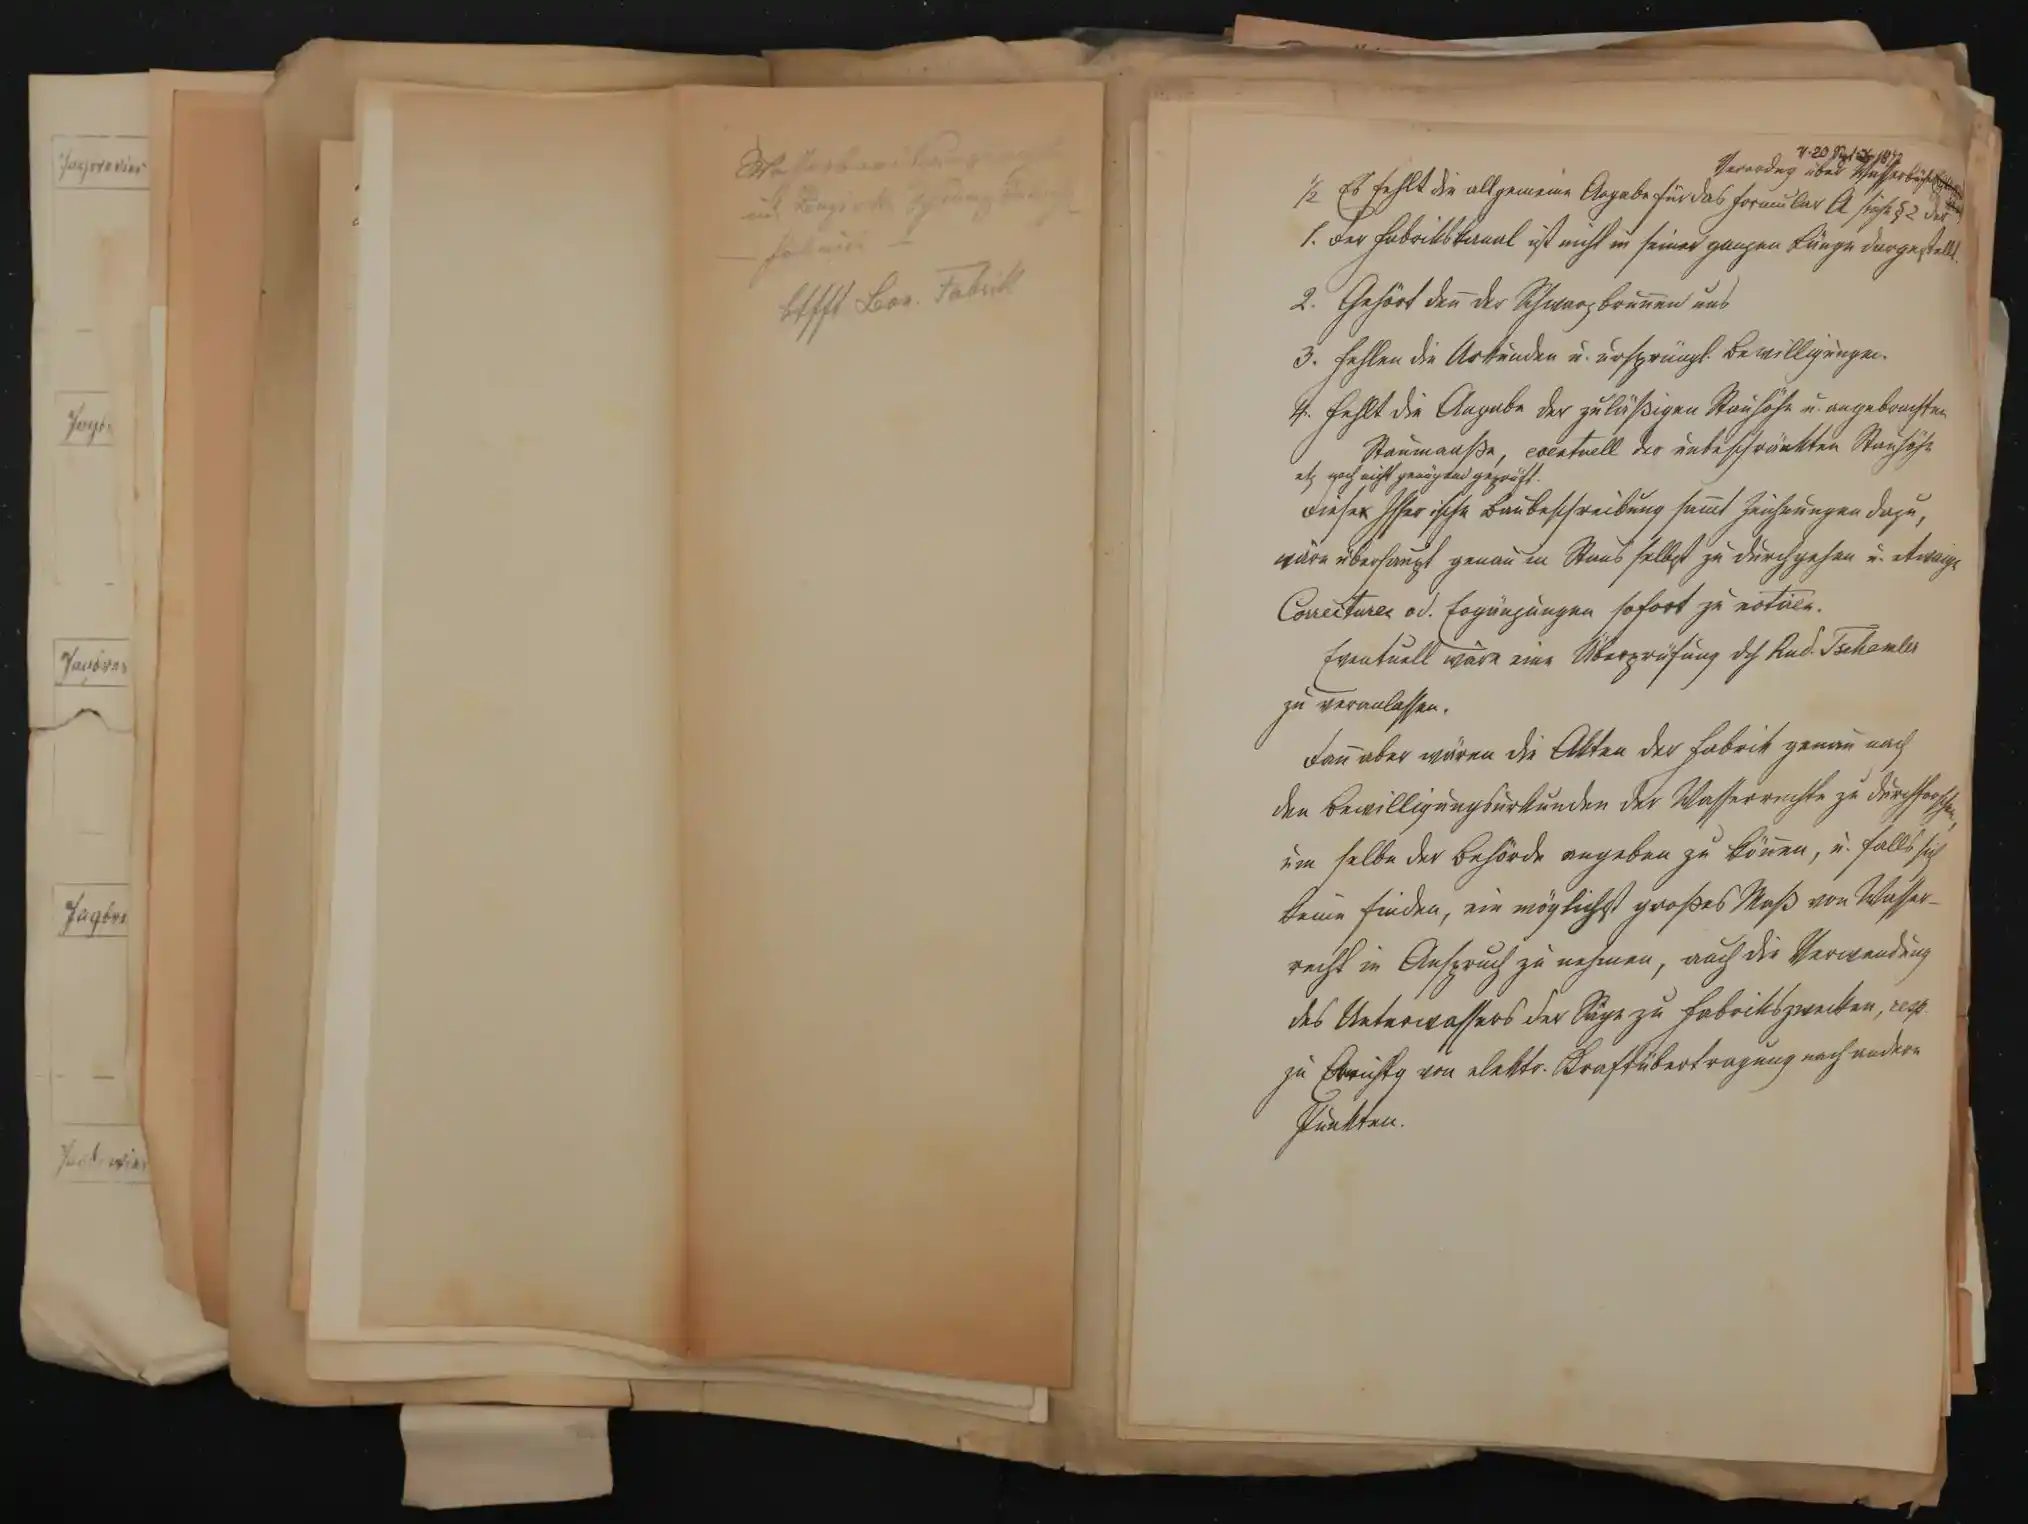 Jagdrevier
Jagdre
Jagdrev
Jagdre
Jagdrevier
btfft Leon. Fabrik
v. 20 Sept. 1872
Verordng über Wasserbücher
1/2 Es fehlt die allgemeine Angabe für das Formular A siehe § 2 der
1. Der Fabrikskanal ist nicht in seiner ganzen Länge dargestellt.
2. Gehört den der Schwarzbrunnen uns
3. Fehlen die Urkunden u. ursprüngl. Bewilligungen.
4. Fehlt die Angabe der zuläßigen Stauhöhe u. angebrachten
Staumaaße, eventuell der unbeschränkten Stauhöhe
etz noch nicht genügend geprüft.
Diese Isser'sche Baubeschreibung samt Zeichnungen dazu,
wäre überhaupt genau in Stans selbst zu durchgehen u. etwaige
Correcturen od. Ergänzungen sofort zu notiren.
Eventuell wäre eine Überprüfung dch Rud. Tschamler
zu veranlassen.
Dann aber wären die Akten der Fabrik genau nach
den Bewilligungsurkunden der Wasserrechte zu durchforschen,
um selbe der Behörde angeben zu können, u. falls sich
keine finden, ein möglichst großes Maß von Wasser-
recht in Anspruch zu nehmen, auch die Verwendung
des Unterwassers der Säge zu Fabrikszwecken, resp.
zu Errichtg von elektr. Kraftübertragung nach andern
Punkten.